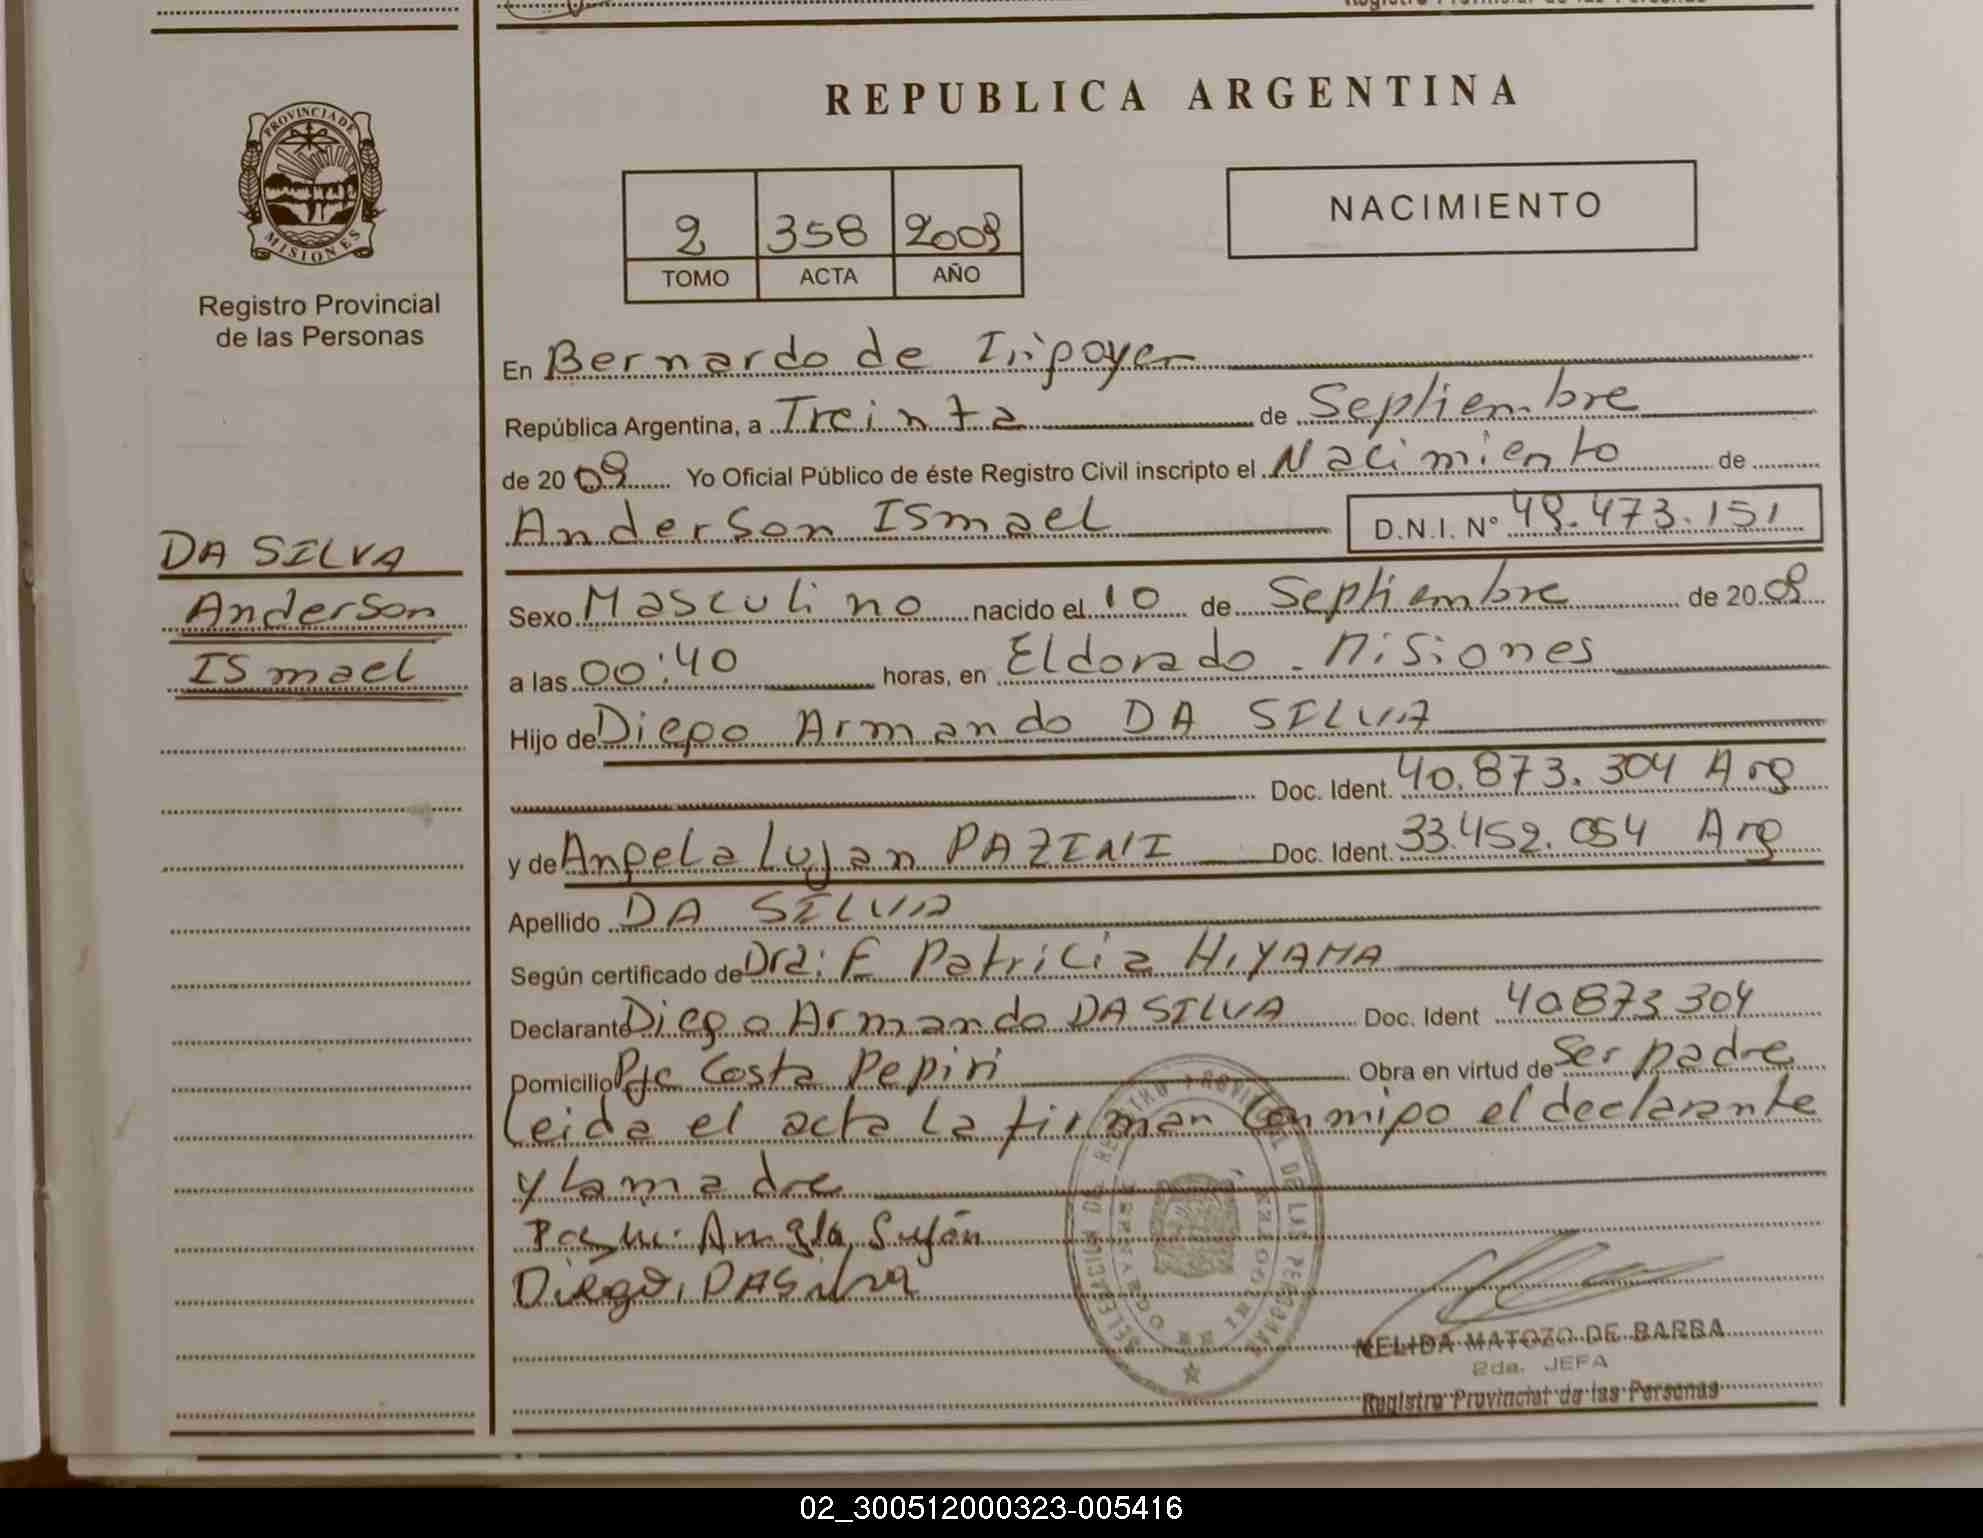 REPUBLICA ARGENTINA
PROVINCIA DE
MISIONES
Registro Provincial
de las Personas
2 358 2009
TOMO ACTA AÑO
NACIMIENTO
En Bernardo de Iripoyen
República Argentina, a Treinta de Septiembre
de 2009 Yo Oficial Público de éste Registro Civil inscripto el Nacimiento de
Anderson ISmael D.N.I. Nº 49.473.151
DA SILVA
Anderson
ISmael
Sexo Masculino nacido el 10 de Septiembre de 2009
a las 00:40 horas, en Eldorado - Misiones
Hijo de Diego Armando DA SILVA
Doc. Ident. 40.873.304 Arg
y de Angela Lujan PAZINI Doc. Ident. 33.452.054 Arg
Apellido DA SILVA
Según certificado de Dra: F Patricia HIYAMA
Declarante Diego Armando DA SILVA Doc. Ident 40873304
Domicilio Pje Costa Pepiri Obra en virtud de Ser padre
Leida el acta la firman Conmigo el declarante
y la madre
Angla Suján
Diego, DASilva
NELIDA MATOZO DE BARBA
2da. JEFA
Registro Provincial de las Personas
02_300512000323-005416